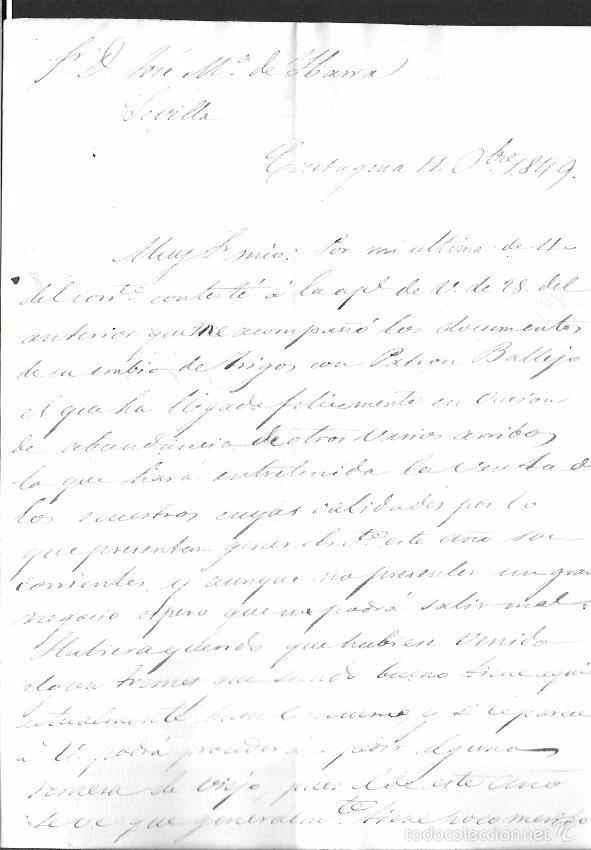 Sr. D. José Ma. de Ybarra
Sevilla
Cartagena 11. Obre. 1849.
Muy Sr. mio: Por mi ultima de 4
del corrte. contesté á la apble de V. de 28. del
anterior que me acompañó los documentos
de su embio de trigos con Patron Ballejo
el que ha llegado felizmente en
de abundancia de otros varios arribos
lo que hará entretenida la venta de
los nuestros cuyas calidades por lo
que presentan generalmte. este año son
corrientes, y aunque no presenten un gran
negocio espero que no podrá salir mal.
Hubiera querido que hubiese venido
que siendo bueno tiene aqui
actualmente buen y si le parece
á V. podrá proceder á expedir alguna
remesa de viejo, pues el de este año
se ve que generalmte. tiene poco merito
todocoleccion.net